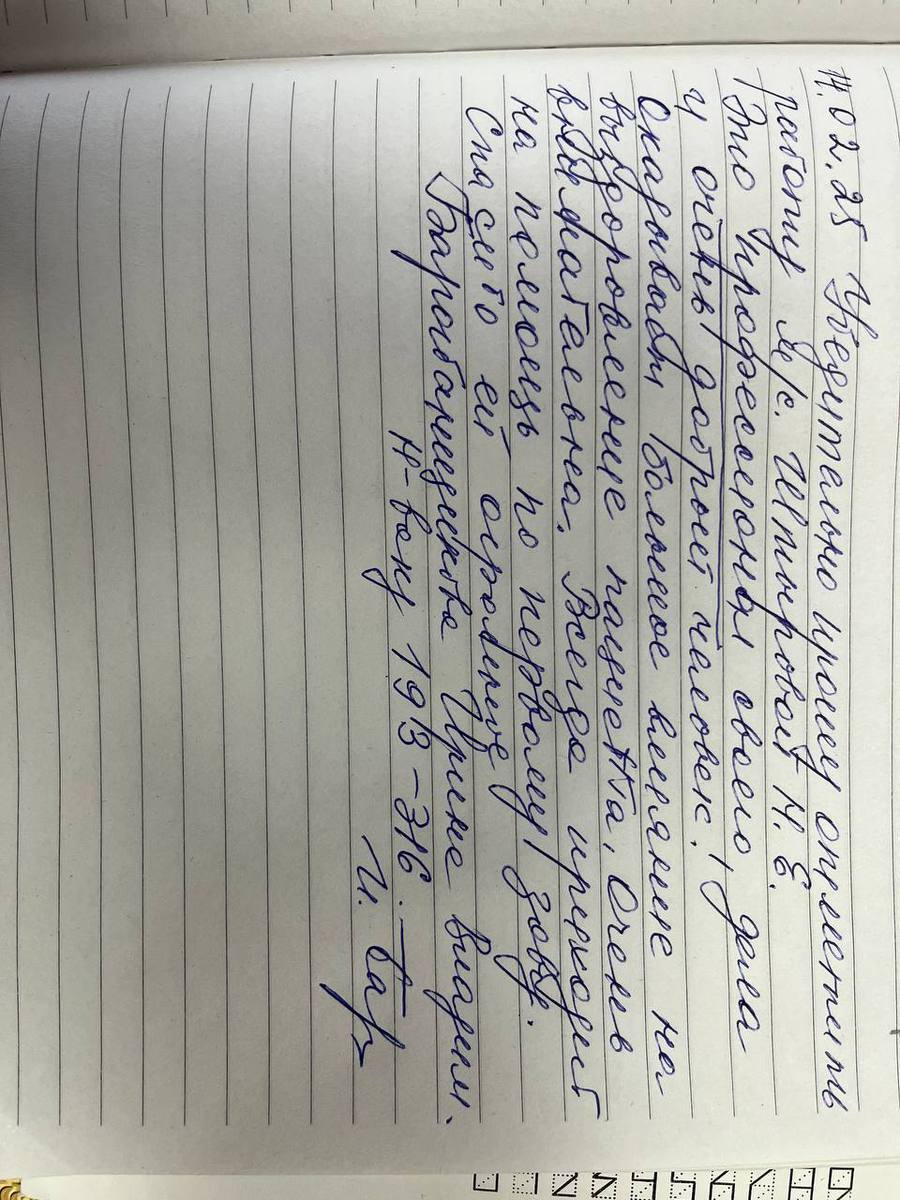 14.02.25 Убедительно прошу отметить
работу м/с. Штыровой Н. Е.
Это профессионал своего дела
и очень добрый человек!
Оказывает большое влияние на
выздоровление пациента. Очень
внимательна. Всегда приходит
на помощь по первому зову.
Спасибо ей огромное
Барабанщикова Ирина Владим.
н-ску 193-316.
И. Бар